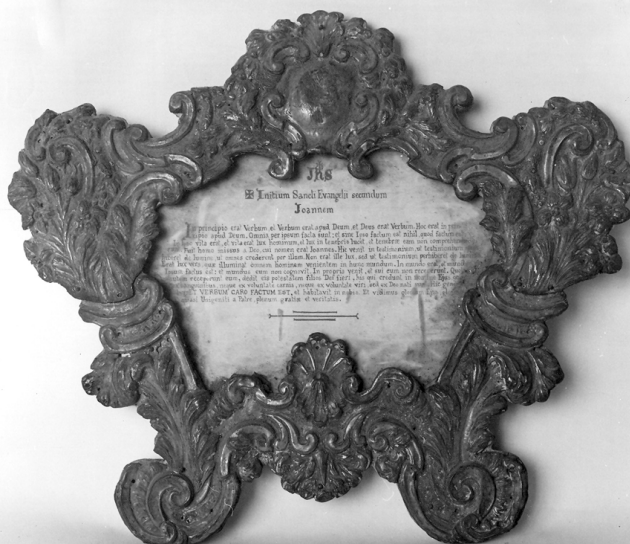 JHS
✠ Initium Sancti Evangelii secundum
Joannem
In principio erat Verbum, et Verbum erat apud Deum, et Deus erat Verbum. Hoc erat in
apud Deum. Omnia per ipsum facta sunt; et sine ipso factum est nihil, quod factum
vita erat, et vita erat lux hominum, et lux in tenebris lucet, et tenebræ eam non comprehenderunt
Fuit homo missus a Deo, cui nomen erat Joannes. Hic venit in testimonium, ut testimonium
de lumine, ut omnes crederent per illum. Non erat ille lux, sed ut testimonium perhiberet de lumine
lux vera, quæ illuminat omnem hominem venientem in hunc mundum. In mundo erat, et mundus
ipsum factus est; et mundus eum non cognovit. In propria venit, et sui eum non receperunt.
receperunt eum, dedit eis potestatem filios Dei fieri, his qui credunt in
neque ex voluntate carnis, neque ex voluntate viri, sed ex Deo nati sunt.
VERBUM CARO FACTUM EST, et habitavit in nobis. Et vidimus
Unigeniti a Patre, plenum gratiæ et veritatis.